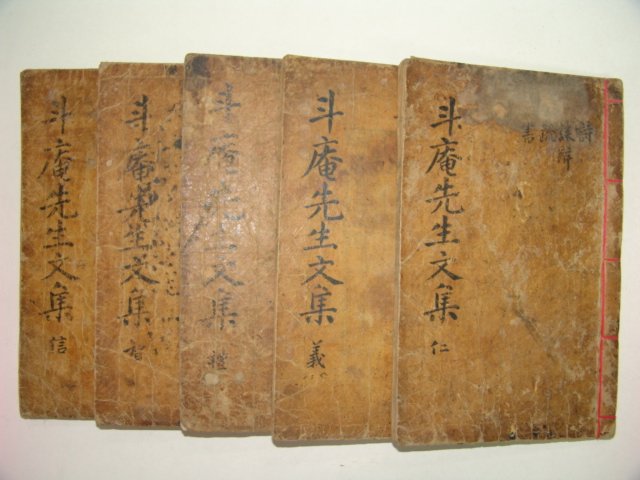 詩
疏
書
斗庵先生文集 仁
斗庵先生文集 義
斗庵先生文集 禮
斗庵先生文集 智
斗庵先生文集 信